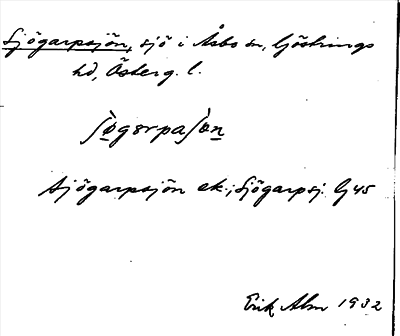 Sjögarpsjön, sjö i Åsbo sn, Göstrings
hd, Österg. l.
ʃø̀gərpaʃøn
Sjögarpsjön ek.; Sjögarpsj. G 45
Erik Alm 1932